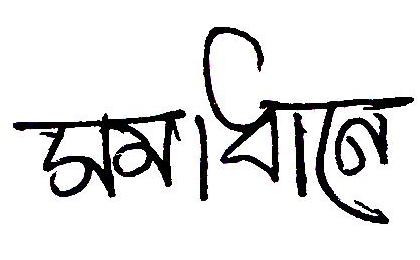 সমাধানে